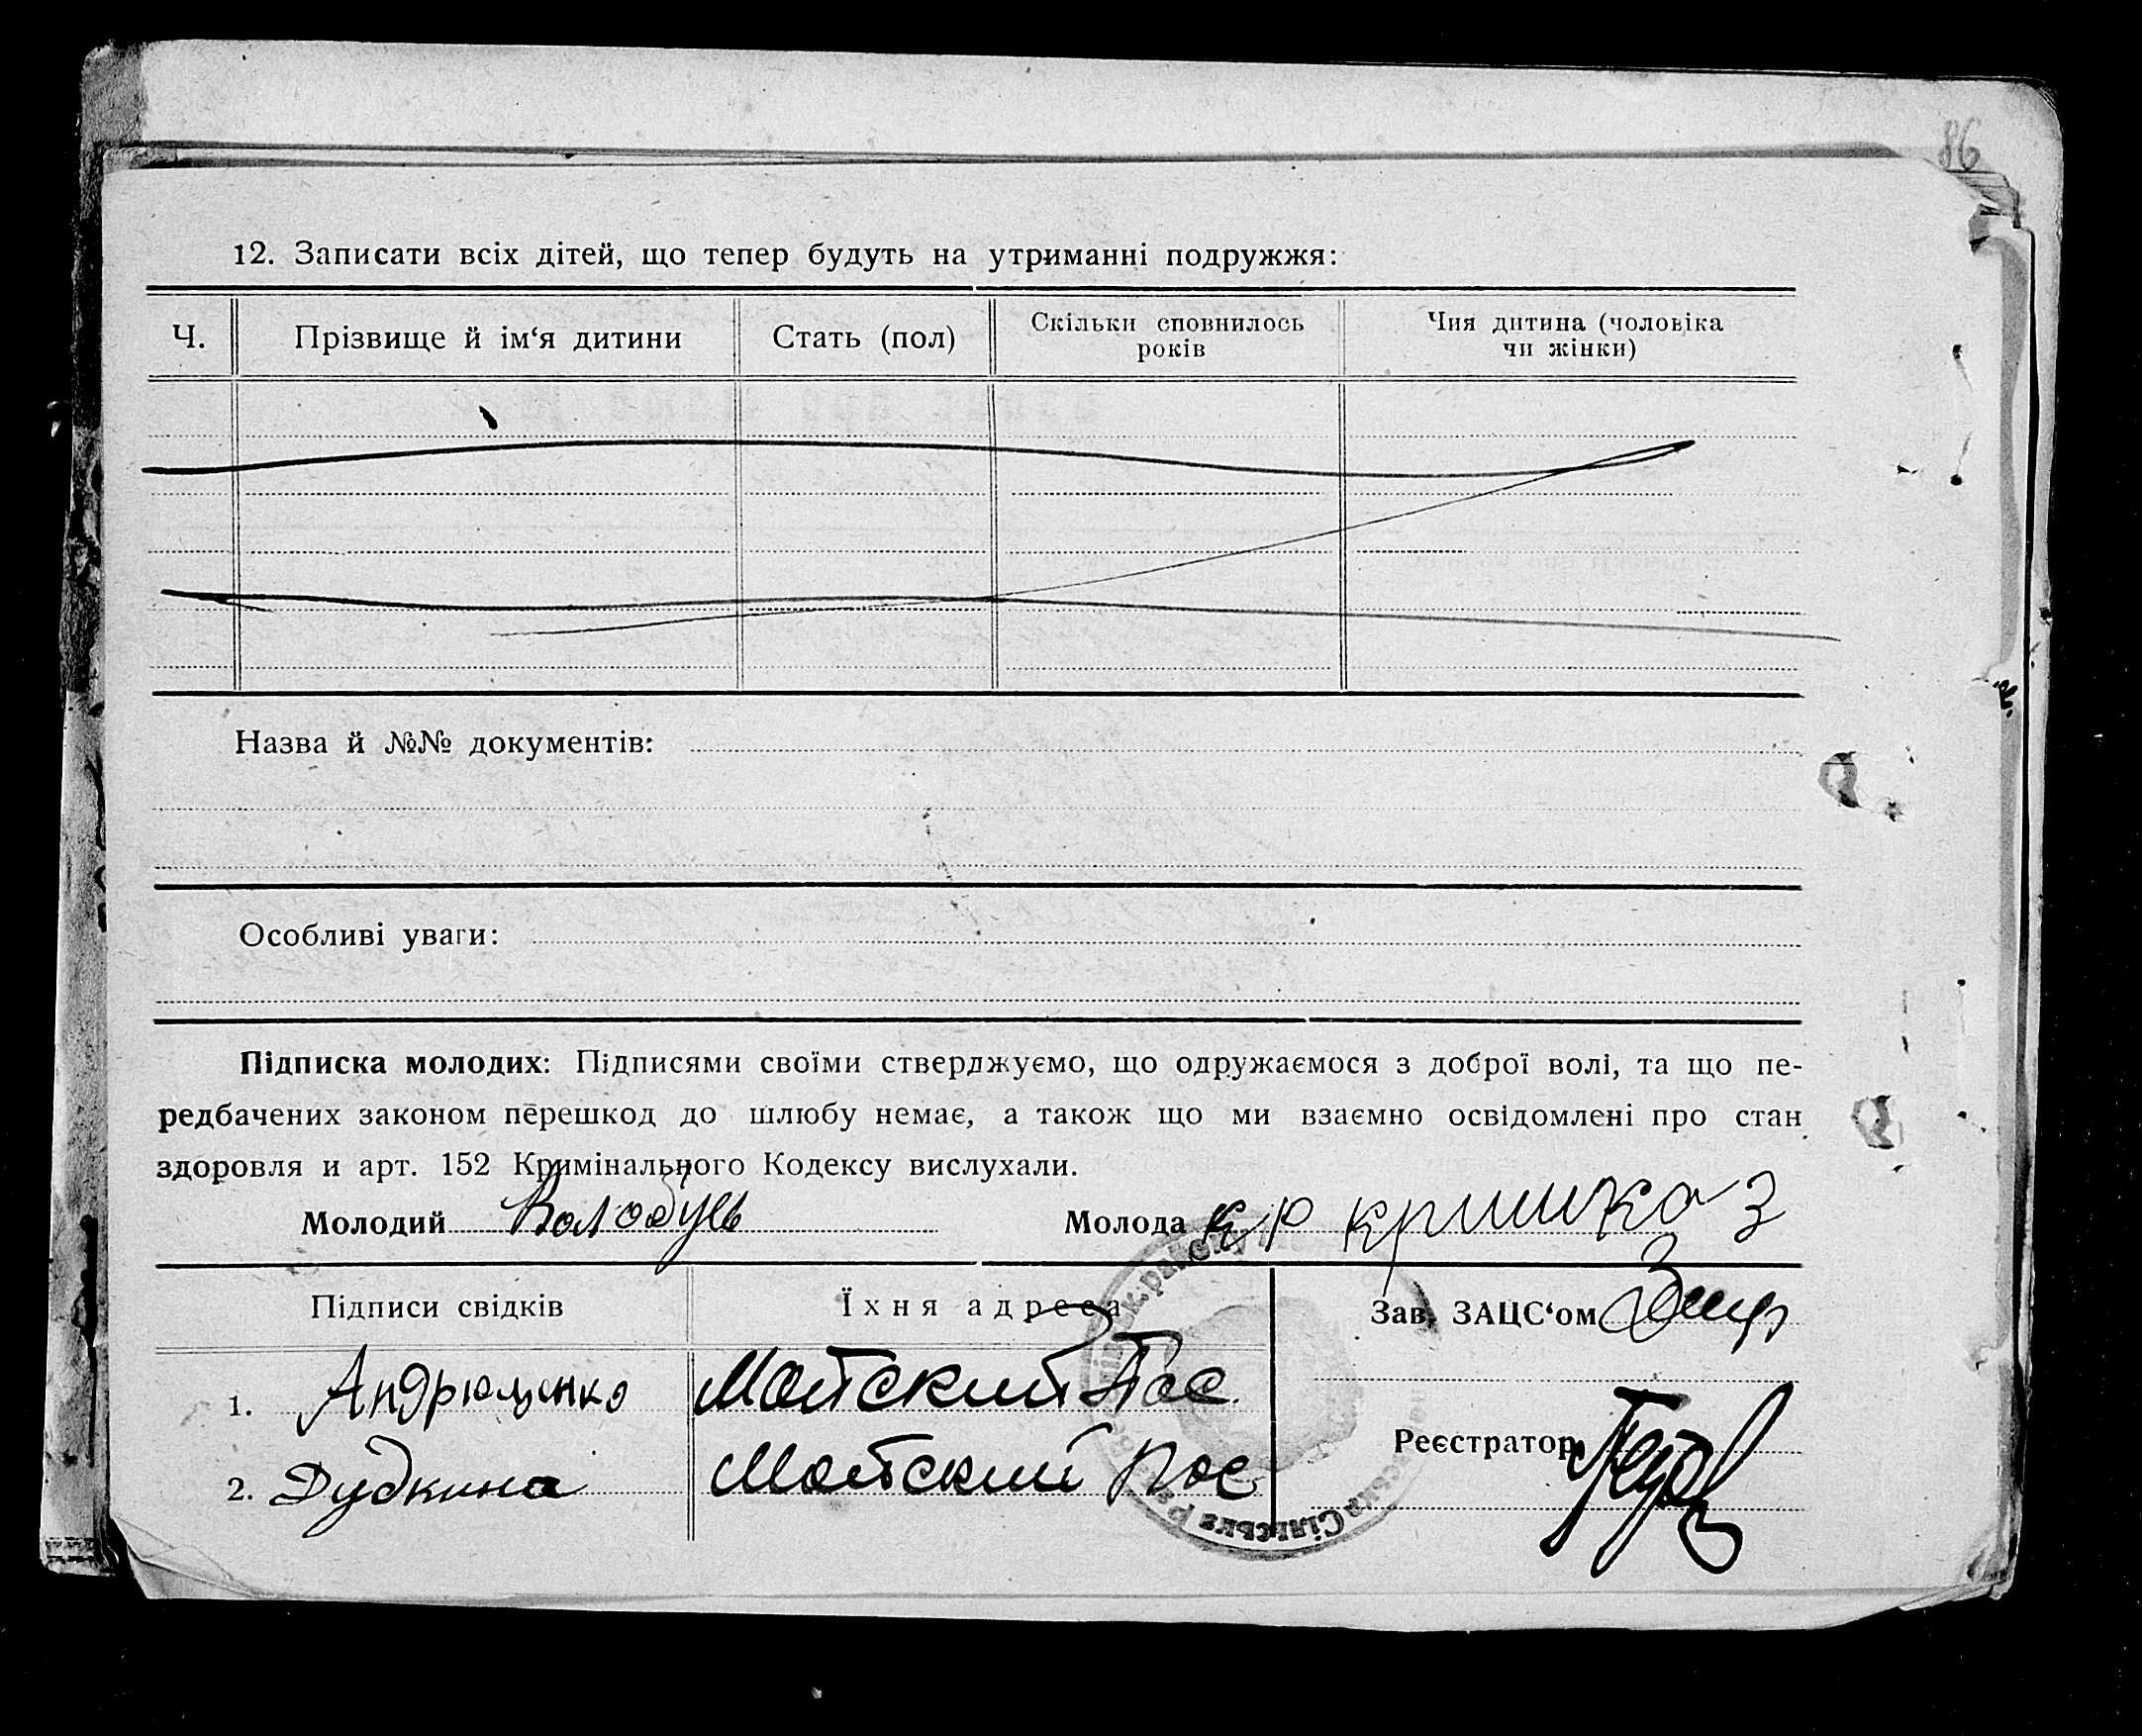 86
12. Записати всіх дітей, що тепер будуть на утриманні подружжя:
Ч. Прізвище й ім‘я дитини Стать (пол) Скільки сповнилось років Чия дитина (чоловіка чи жінки)
Назва й №№ документів:
Особливі уваги:
Підписка молодих: Підписями своїми стверджуємо, що одружаємося з доброї волі, та що пе-
редбачених законом перешкод до шлюбу немає, а також що ми взаємно освідомлені про стан
здоровля и арт. 152 Кримінального Кодексу вислухали.
Молодий Володуєв Молода
Підписи свідків Їхня адреса Зав. ЗАЦС‘ом
1. Андрющенко Майский Пос.
Реєстратор
2. Дудкина Майский Пос
Сільська